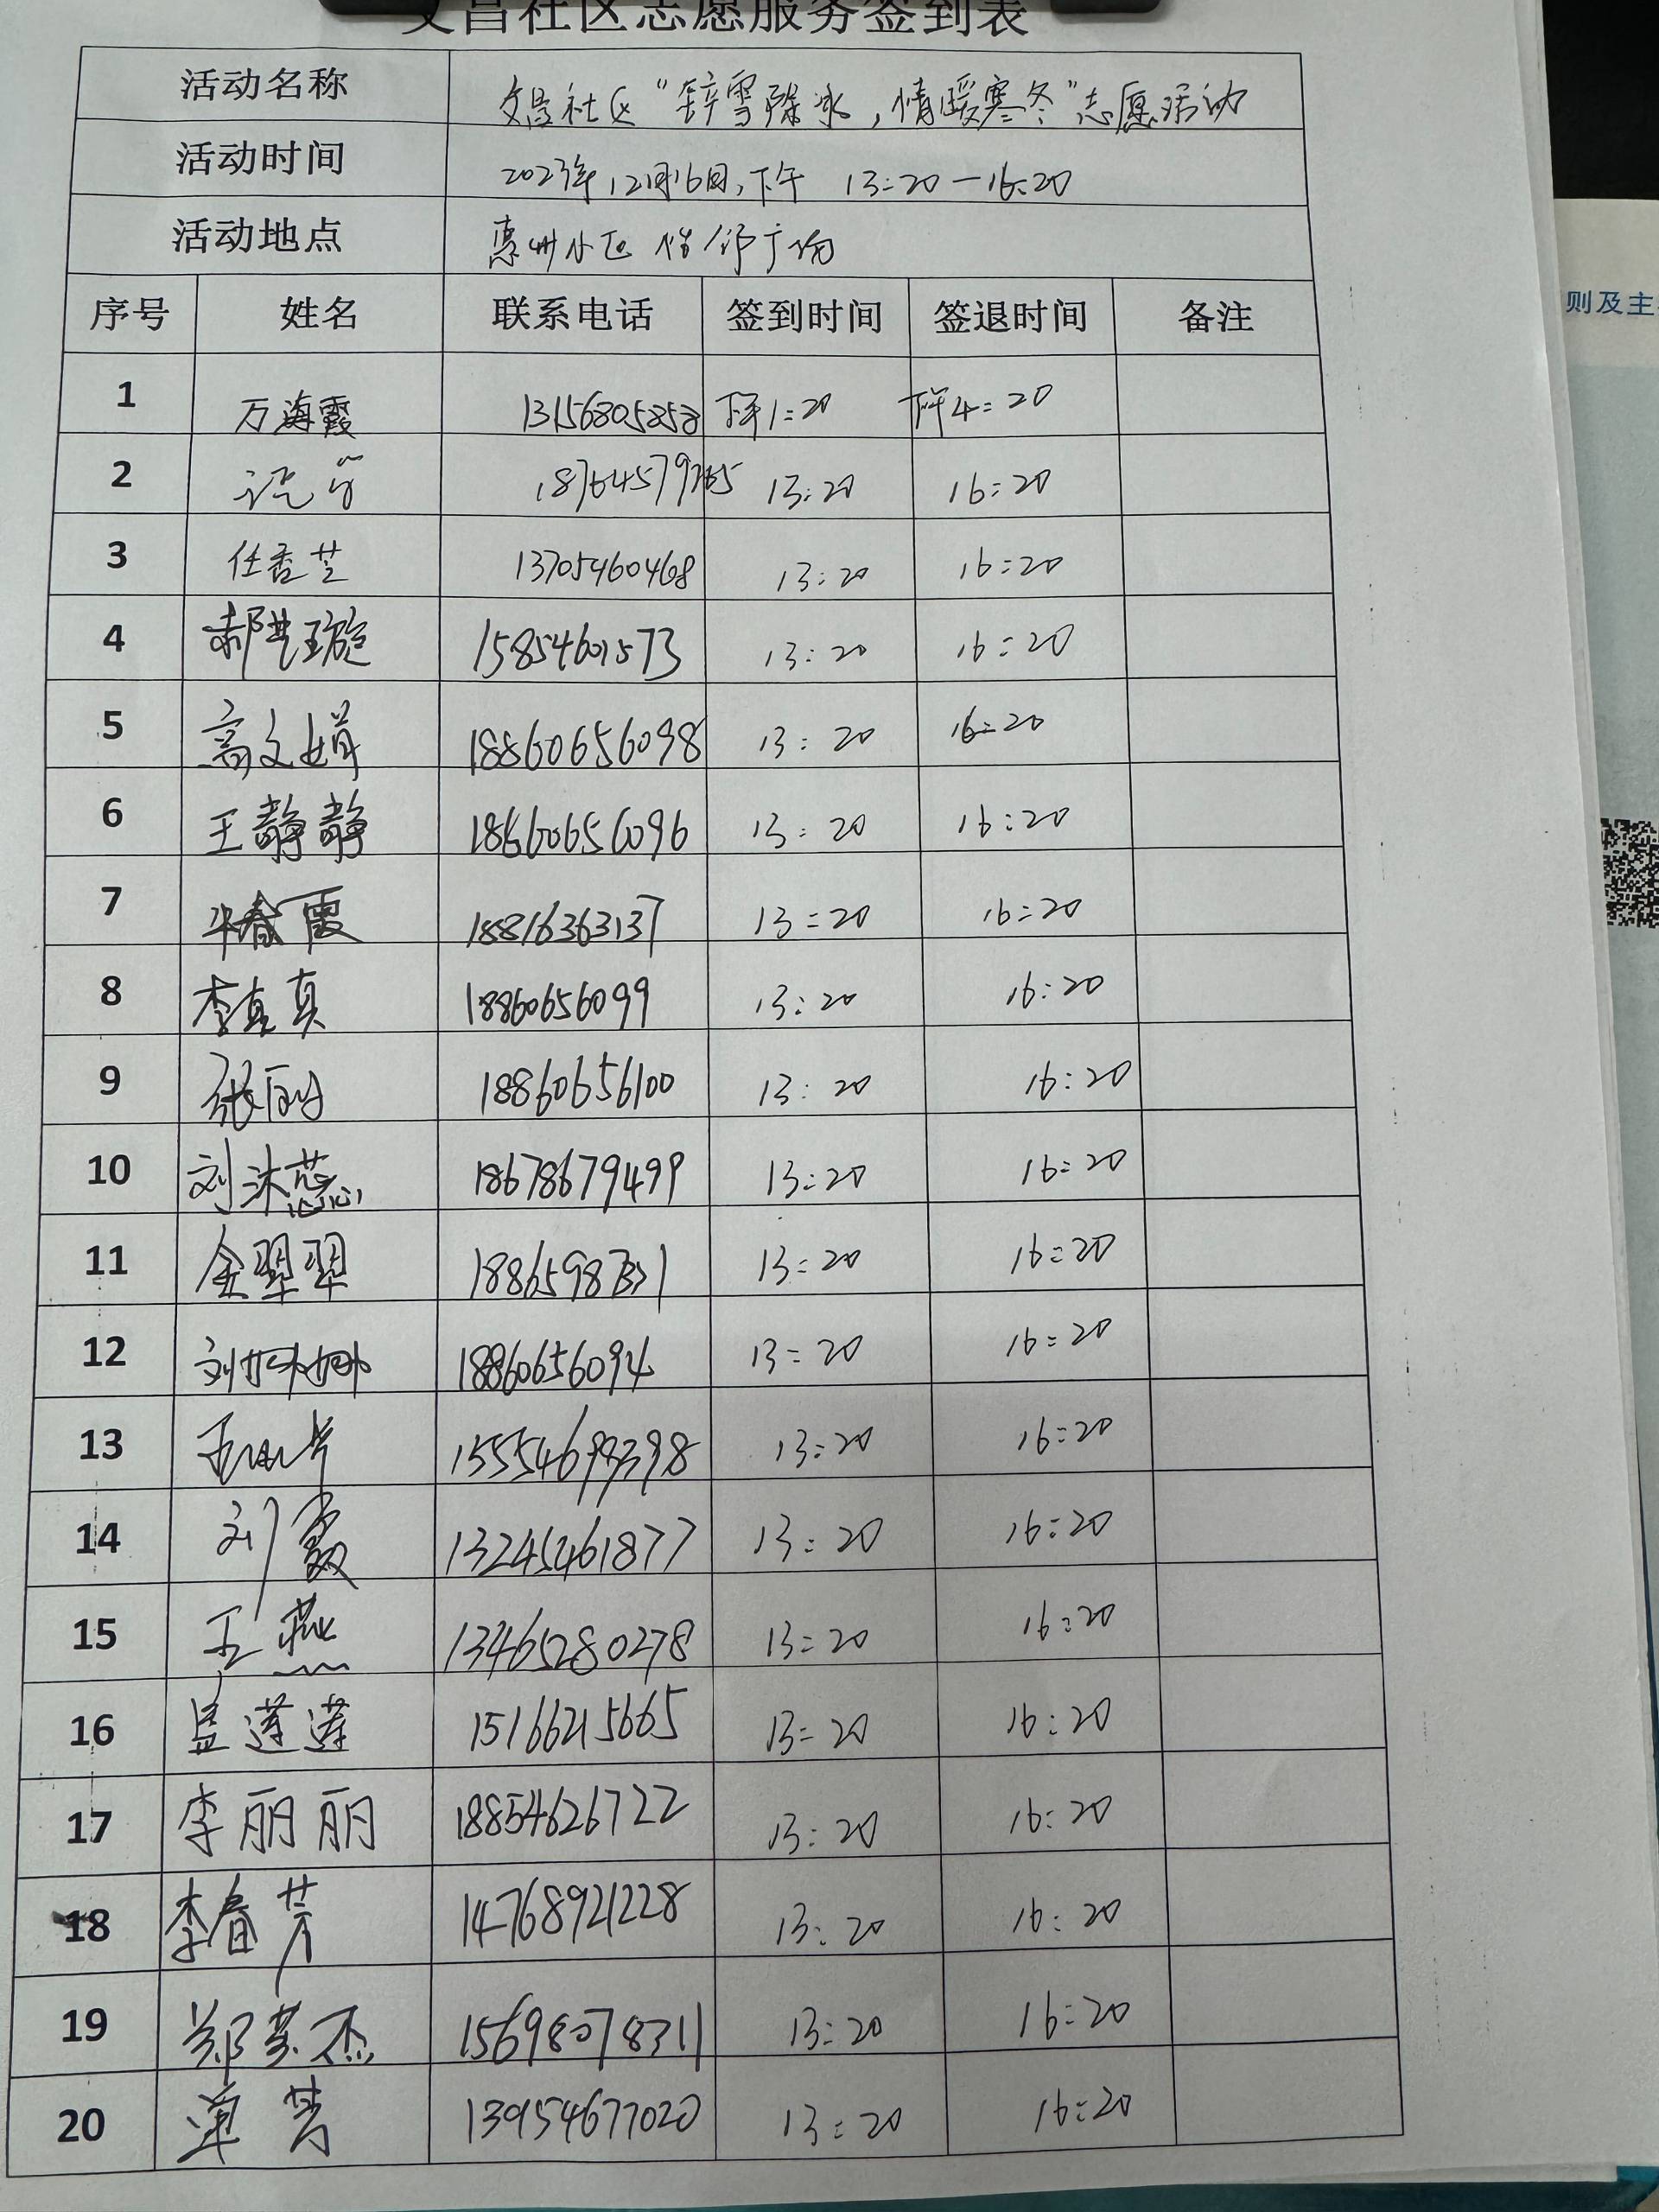 文昌社区志愿服务签到表
活动名称 文昌社区“铲雪除冰,情暖寒冬”志愿活动
活动时间 2023年12月16日,下午 13:20-16:20
活动地点 惠州小区 广场
序号 姓名 联系电话 签到时间 签退时间 备注
则及主
1 万海霞 13156805858 下午1:20 下午4:20
2 13:20 16:20
3 任香芝 13705460468 13:20 16:20
4 13:20 16:20
5 高文娟 18860656098 13:20 16:20
6 王静静 18860656096 13:20 16:20
7 牛春霞 18816363137 13:20 16:20
8 李真真 18860656099 13:20 16:20
9 张丽 18860656100 13:20 16:20
10 刘沐蕊 18678679499 13:20 16:20
11 金翠翠 13:20 16:20
12 刘娜娜 18860656094 13:20 16:20
13 13:20 16:20
14 刘霞 13245461877 13:20 16:20
15 王燕 13465280278 13:20 16:20
16 盖莲莲 15166215665 13:20 16:20
17 李丽丽 18854626722 13:20 16:20
18 李春芳 14768921228 13:20 16:20
19 郑其杰 15698078311 13:20 16:20
20 单芳 13954677020 13:20 16:20